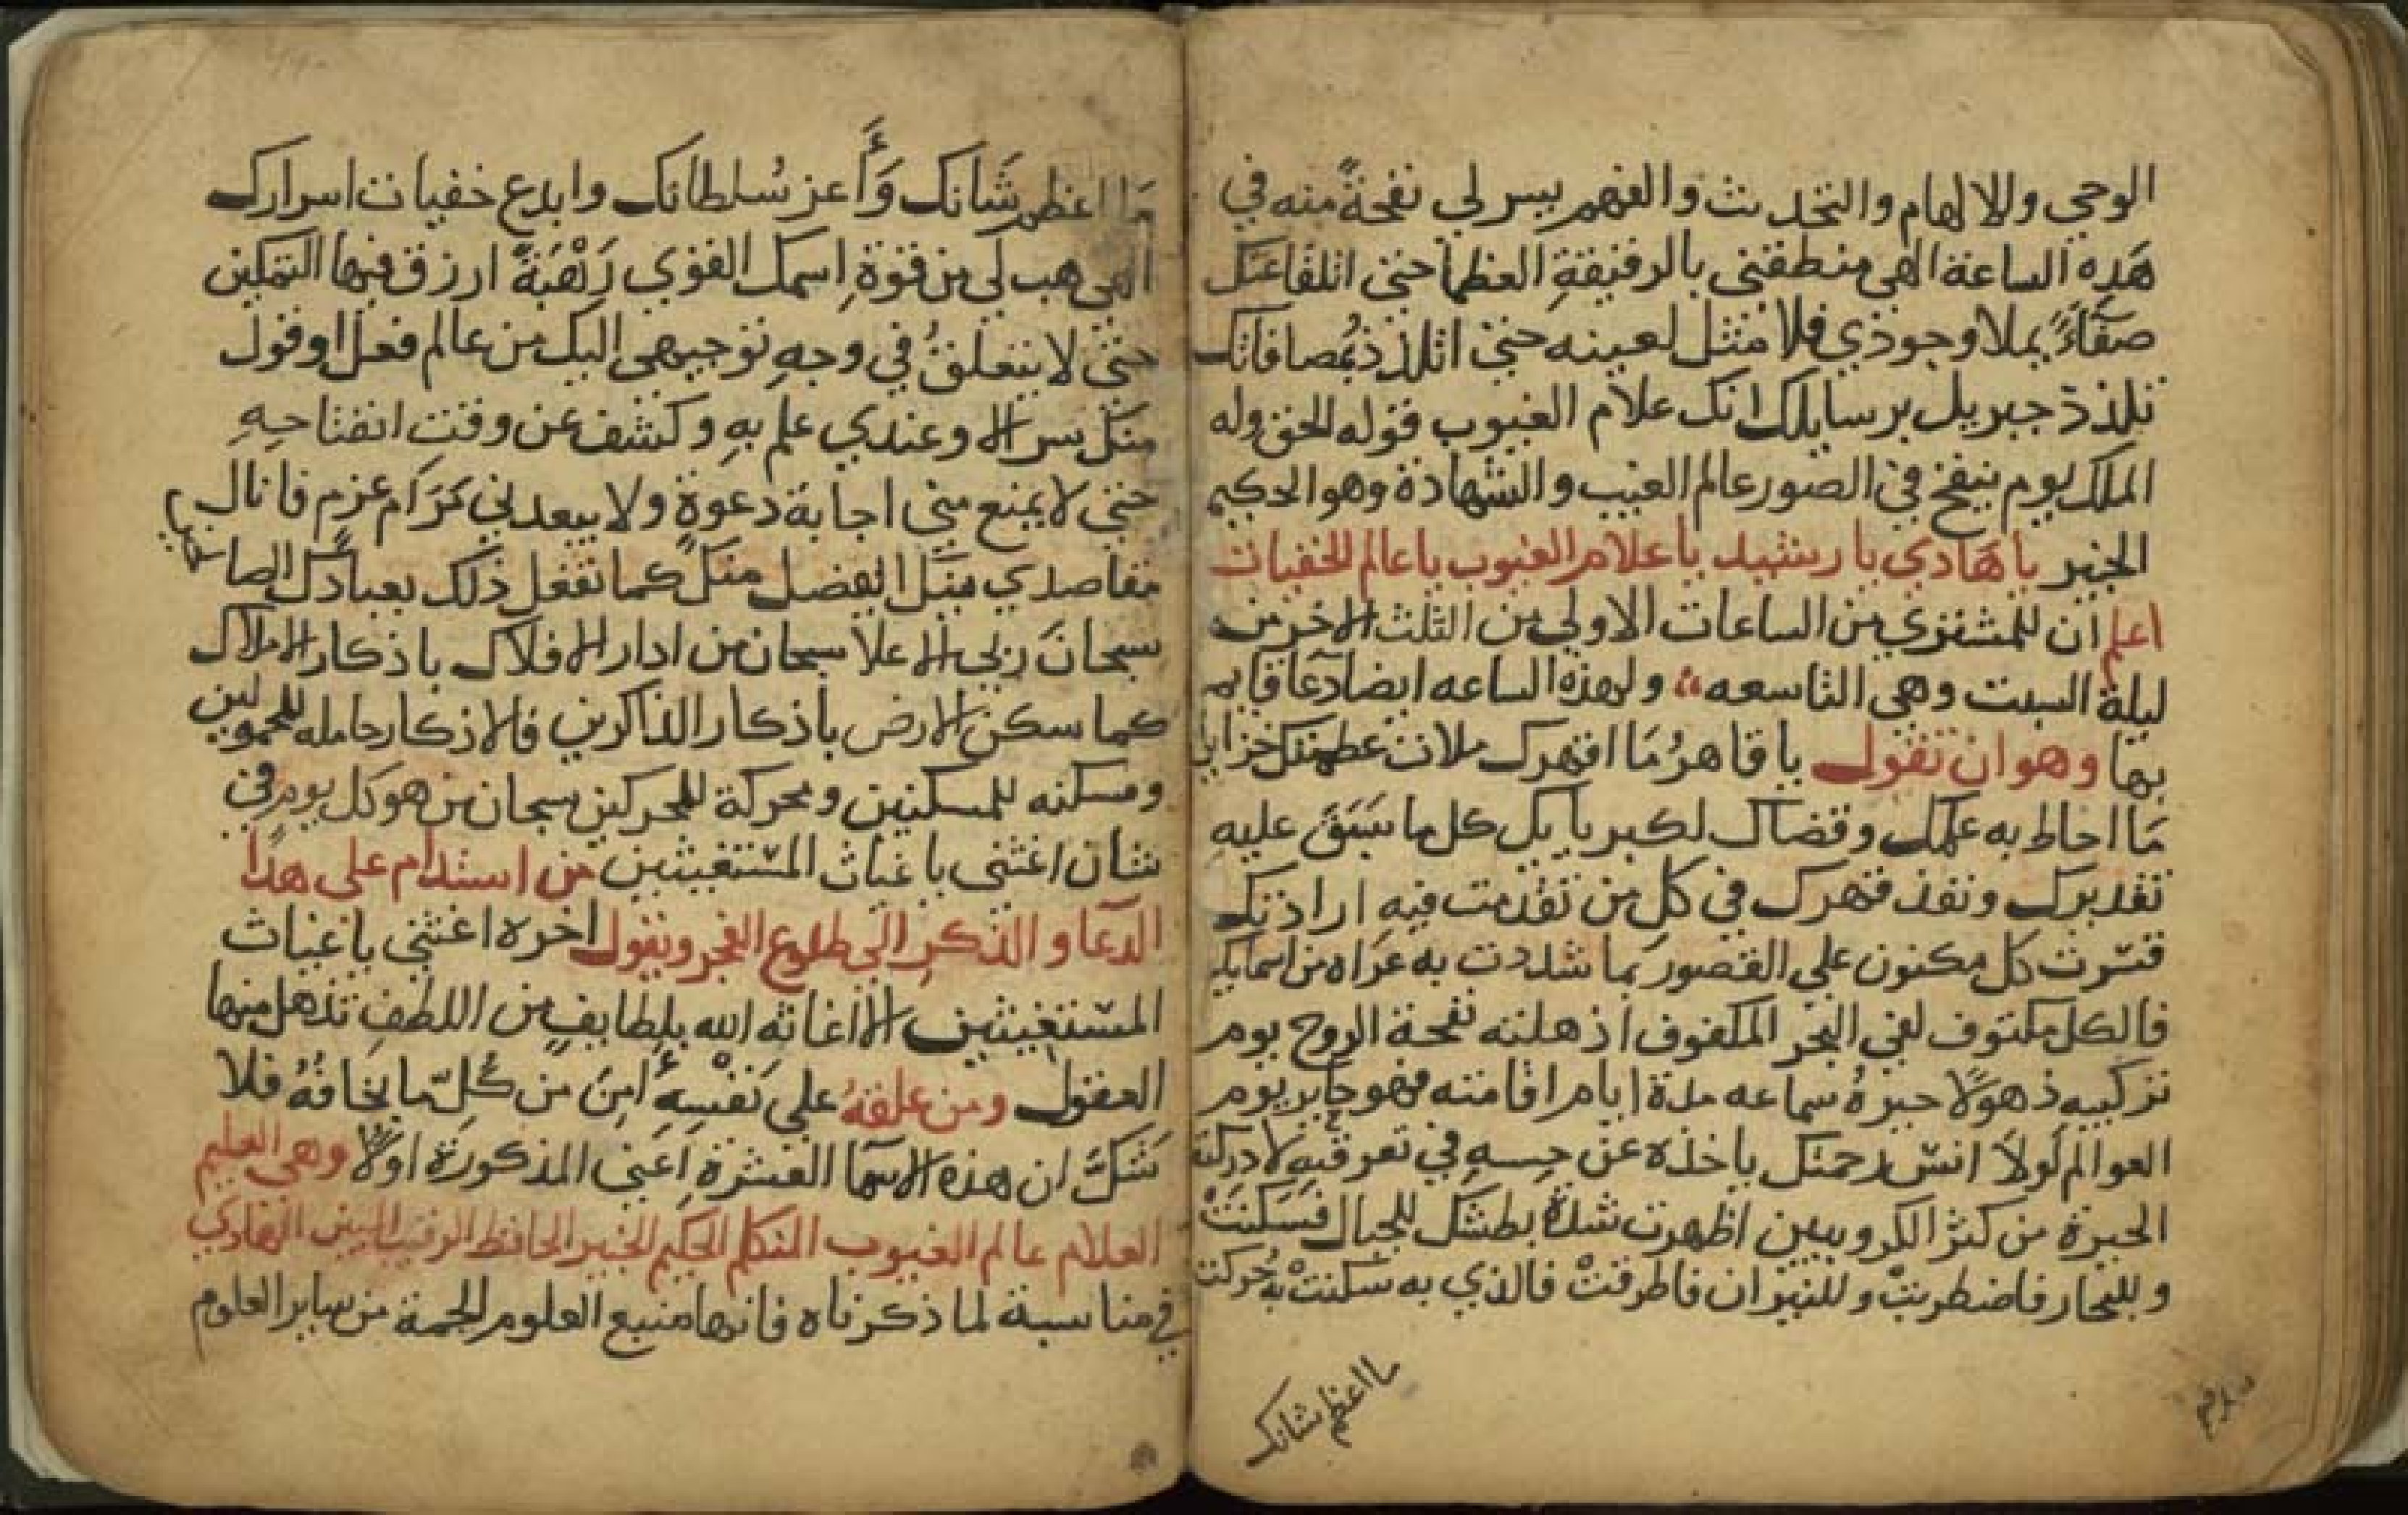 الوحي والالهام والتحديث والفهم يسر لي نفحةً منه في
هذه الساعة الهي منطقني بالرقيقة العظما حتى اتلقا عنك
صفآءً يملا وجودي فلا مثل لعينه حتى اتلذذ بمصافاتك
تلذذ جبريل برسايلك انك علام الغيوب قوله الحق وله
الملك يوم ينفخ في الصور عالم الغيب والشهادة وهو الحكيم
الخبير يا هادي يا رشيد يا علام الغيوب يا عالم الخفيات
اعلم ان للمشتري من الساعات الاولي من الثلث الاخر من
ليلة السبت وهي التاسعه ولهذه الساعه ايضا دعا قايم
بها وهو ان تقول يا قاهرُ مَا اقهرك ملات عظمتك خزاين
مَا احاط به علمك وقضاك لكبريايك كل ما سَبَقَ عليه
تقديرك ونفذ قهرك في كل من تقدمت فيه ارادتك
قسرت كل مكنون علي القصور بما شددت به عراه من اسمايك
فالكل مكتوف لفي البحر المكفوف اذهلته نفحة الروح يوم
تركيبه ذهولًا حيرهُ سماعه مدة ايام اقامته فهو حاير يوم
العوالم لولا انس رحمتك ياخذه عن حِسهِ في تعرقيهِ لادركته
الحيرة من كثر الكروبيين اظهرت شدة بطشك للجبال فسكنتْ
وللبحار فاضطربتْ وللنيران فاطرقتْ فالذي به سكنتْ به حُركت
ما اعظم شانك
مَا اعظم شَانك وَأَعز سُلطانك وابدع خفيات اسرارك
الهي هب لي من قوة اِسمك القوي رَهْبَةً ارزق فيها التمكين
حتى لا يتعلقُ في وجهِ توجيهي اليك من عالم فعل او قول
منك بسر الا وعندي علم بهِ وكشف عن وقت انفتاحهِ
حتى لا يمنع مني اجابة دعوةٍ ولا يبعدني مَرَام عزم فانال
مقاصدي منك الفضل منك كما تفعل ذلك بعبادك الصالحين
سبحانَ ربي الاعلا سبحان من ادار الافلاك باذكار الاملاك
كما سكن الارض باذكار الذاكرين فالاذكار حامله للمحمولين
ومسكنه للمسكنين ومحركة للمحركين سبحان من هو كل يوم في
شان اغثني يا غياث المستغيثين من استدام على هذا
الدعا والذكر الي طلوع الفجر ويقول اخره اغثني يا غياث
المستغيثين الا اغاثه الله بلطايفٍ من اللطفِ تذهل منها
العقول ومن علقهُ علي نَفْسِهِ أمِنَ من كُلّ ما يخافهُ فلا
شَكَّ ان هذه الاسما العشرة اعني المذكورة اولًا وهي العليم
العلام عالم الغيوب المتكلم الحكيم الخبير الحافظ الرقيب المبين الهادي
في مناسبة لما ذكرناه فانها منبع العلوم الجمة من ساير العلوم